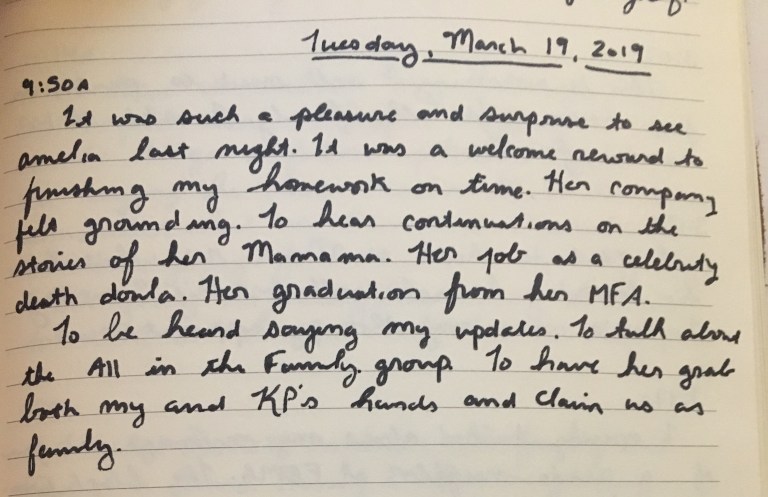 Tuesday, March 19, 2019
9:50A
It was such a pleasure and surprise to see
amelia last night. It was a welcome reward to
finishing my homework on time. Her company
felt grounding. To hear continuations on the
stories of her Mamama. Her job as a celebrity
death doula. Her graduation from her MFA.
To be heard saying my updates. To talk about
the All in the Family group. To have her grab
both my and KP's hands and claim us as
family.